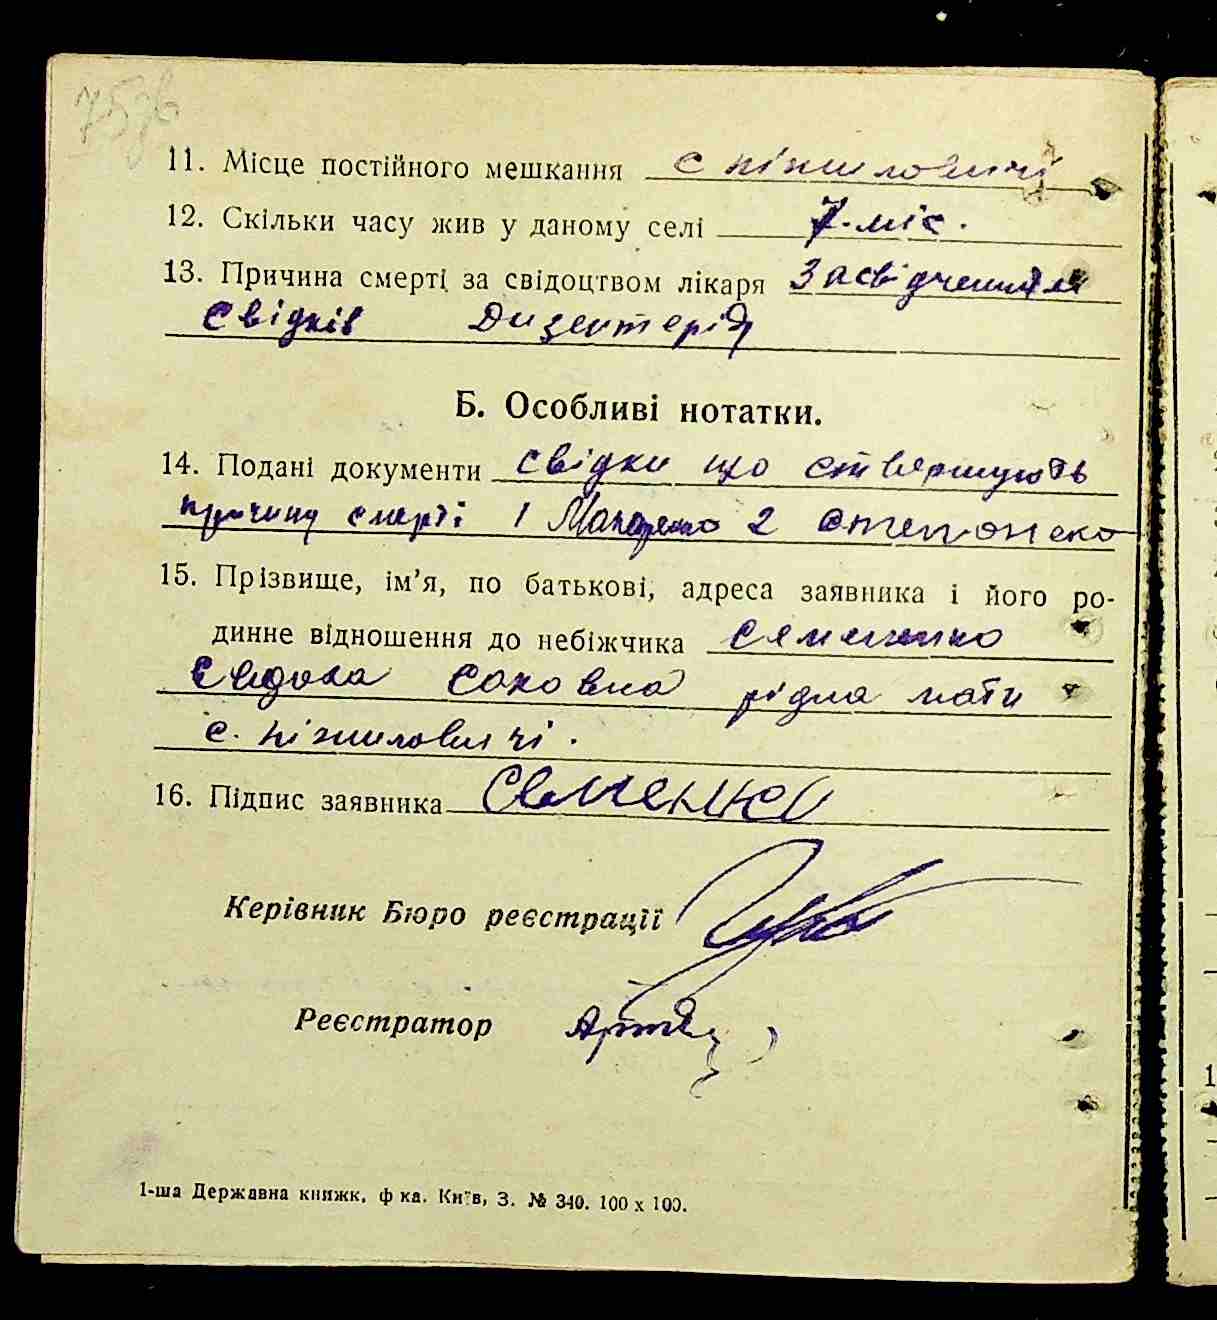 75зв
11. Місце постійного мешкання с ніжиловичі
12. Скільки часу жив у даному селі 7-міс.
13. Причина смерті за свідоцтвом лікаря Засвідченням
свідків Дизентерія
Б. Особливі нотатки.
14. Подані документи свідки що ствержують
причину смерті 1 Макаренко 2
15. Прізвище, ім'я, по батькові, адреса заявника і його ро-
динне відношення до небіжчика Семененко
рідна мати
с. ніжиловичі.
16. Підпис заявника
Керівник Бюро реєстрації
Реєстратор
1-ша Державна книжк. ф ка. Київ, З. № 340. 100 х 100.